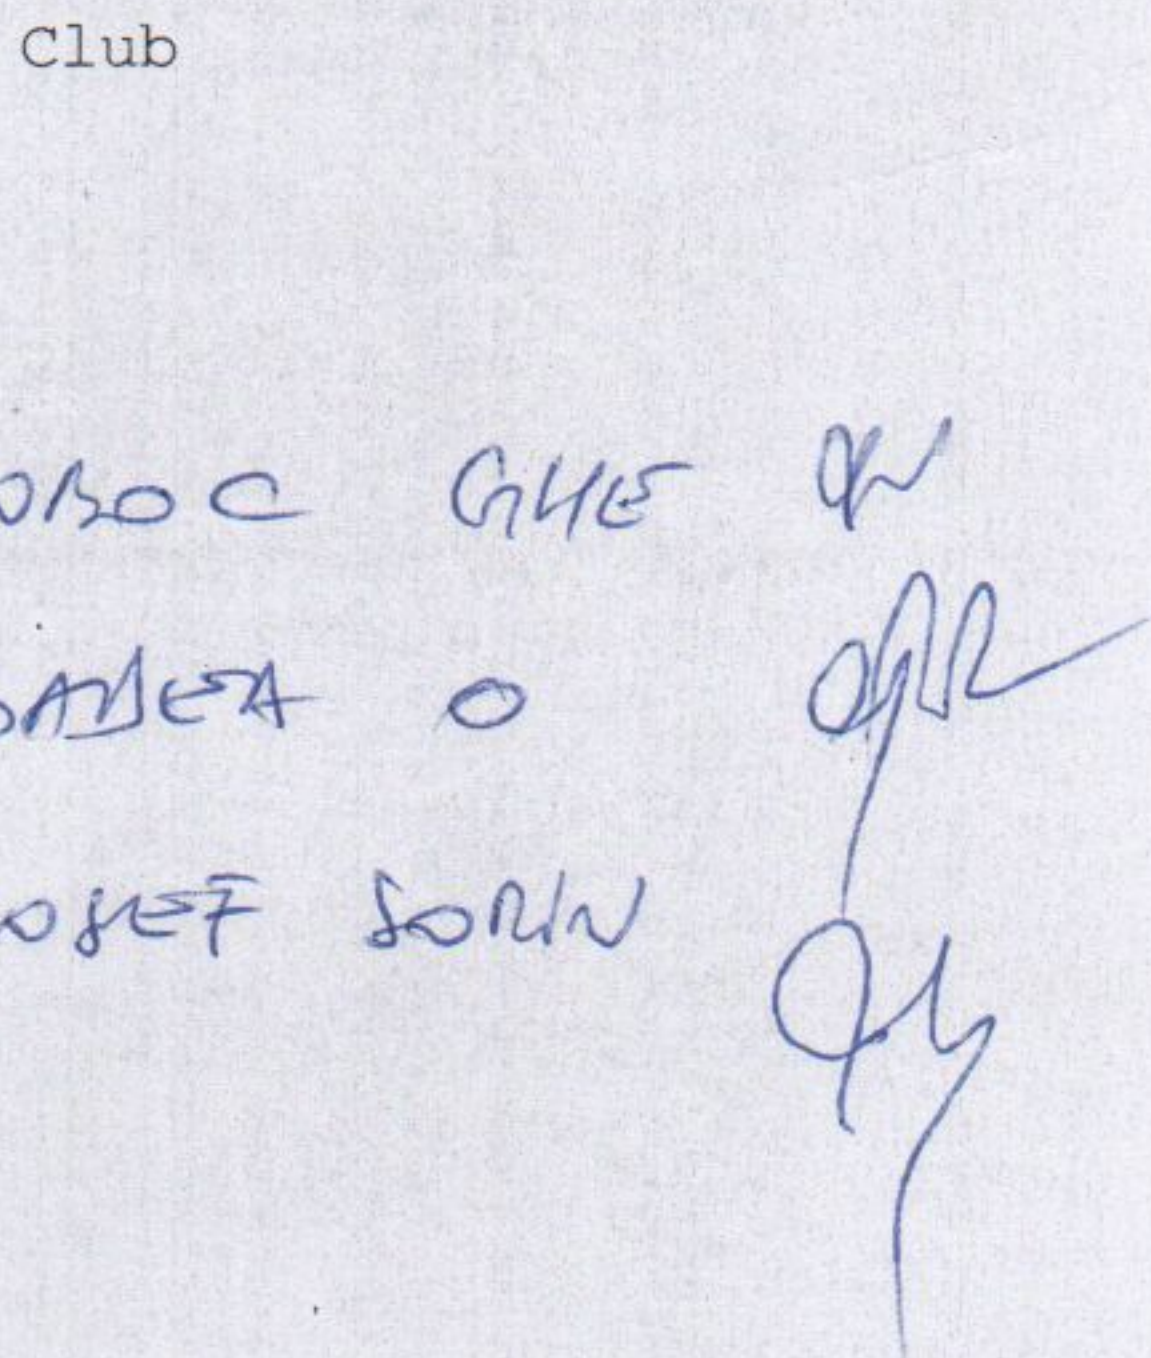 Club
OBOC GHE
DABEA O
OSEF SORIN